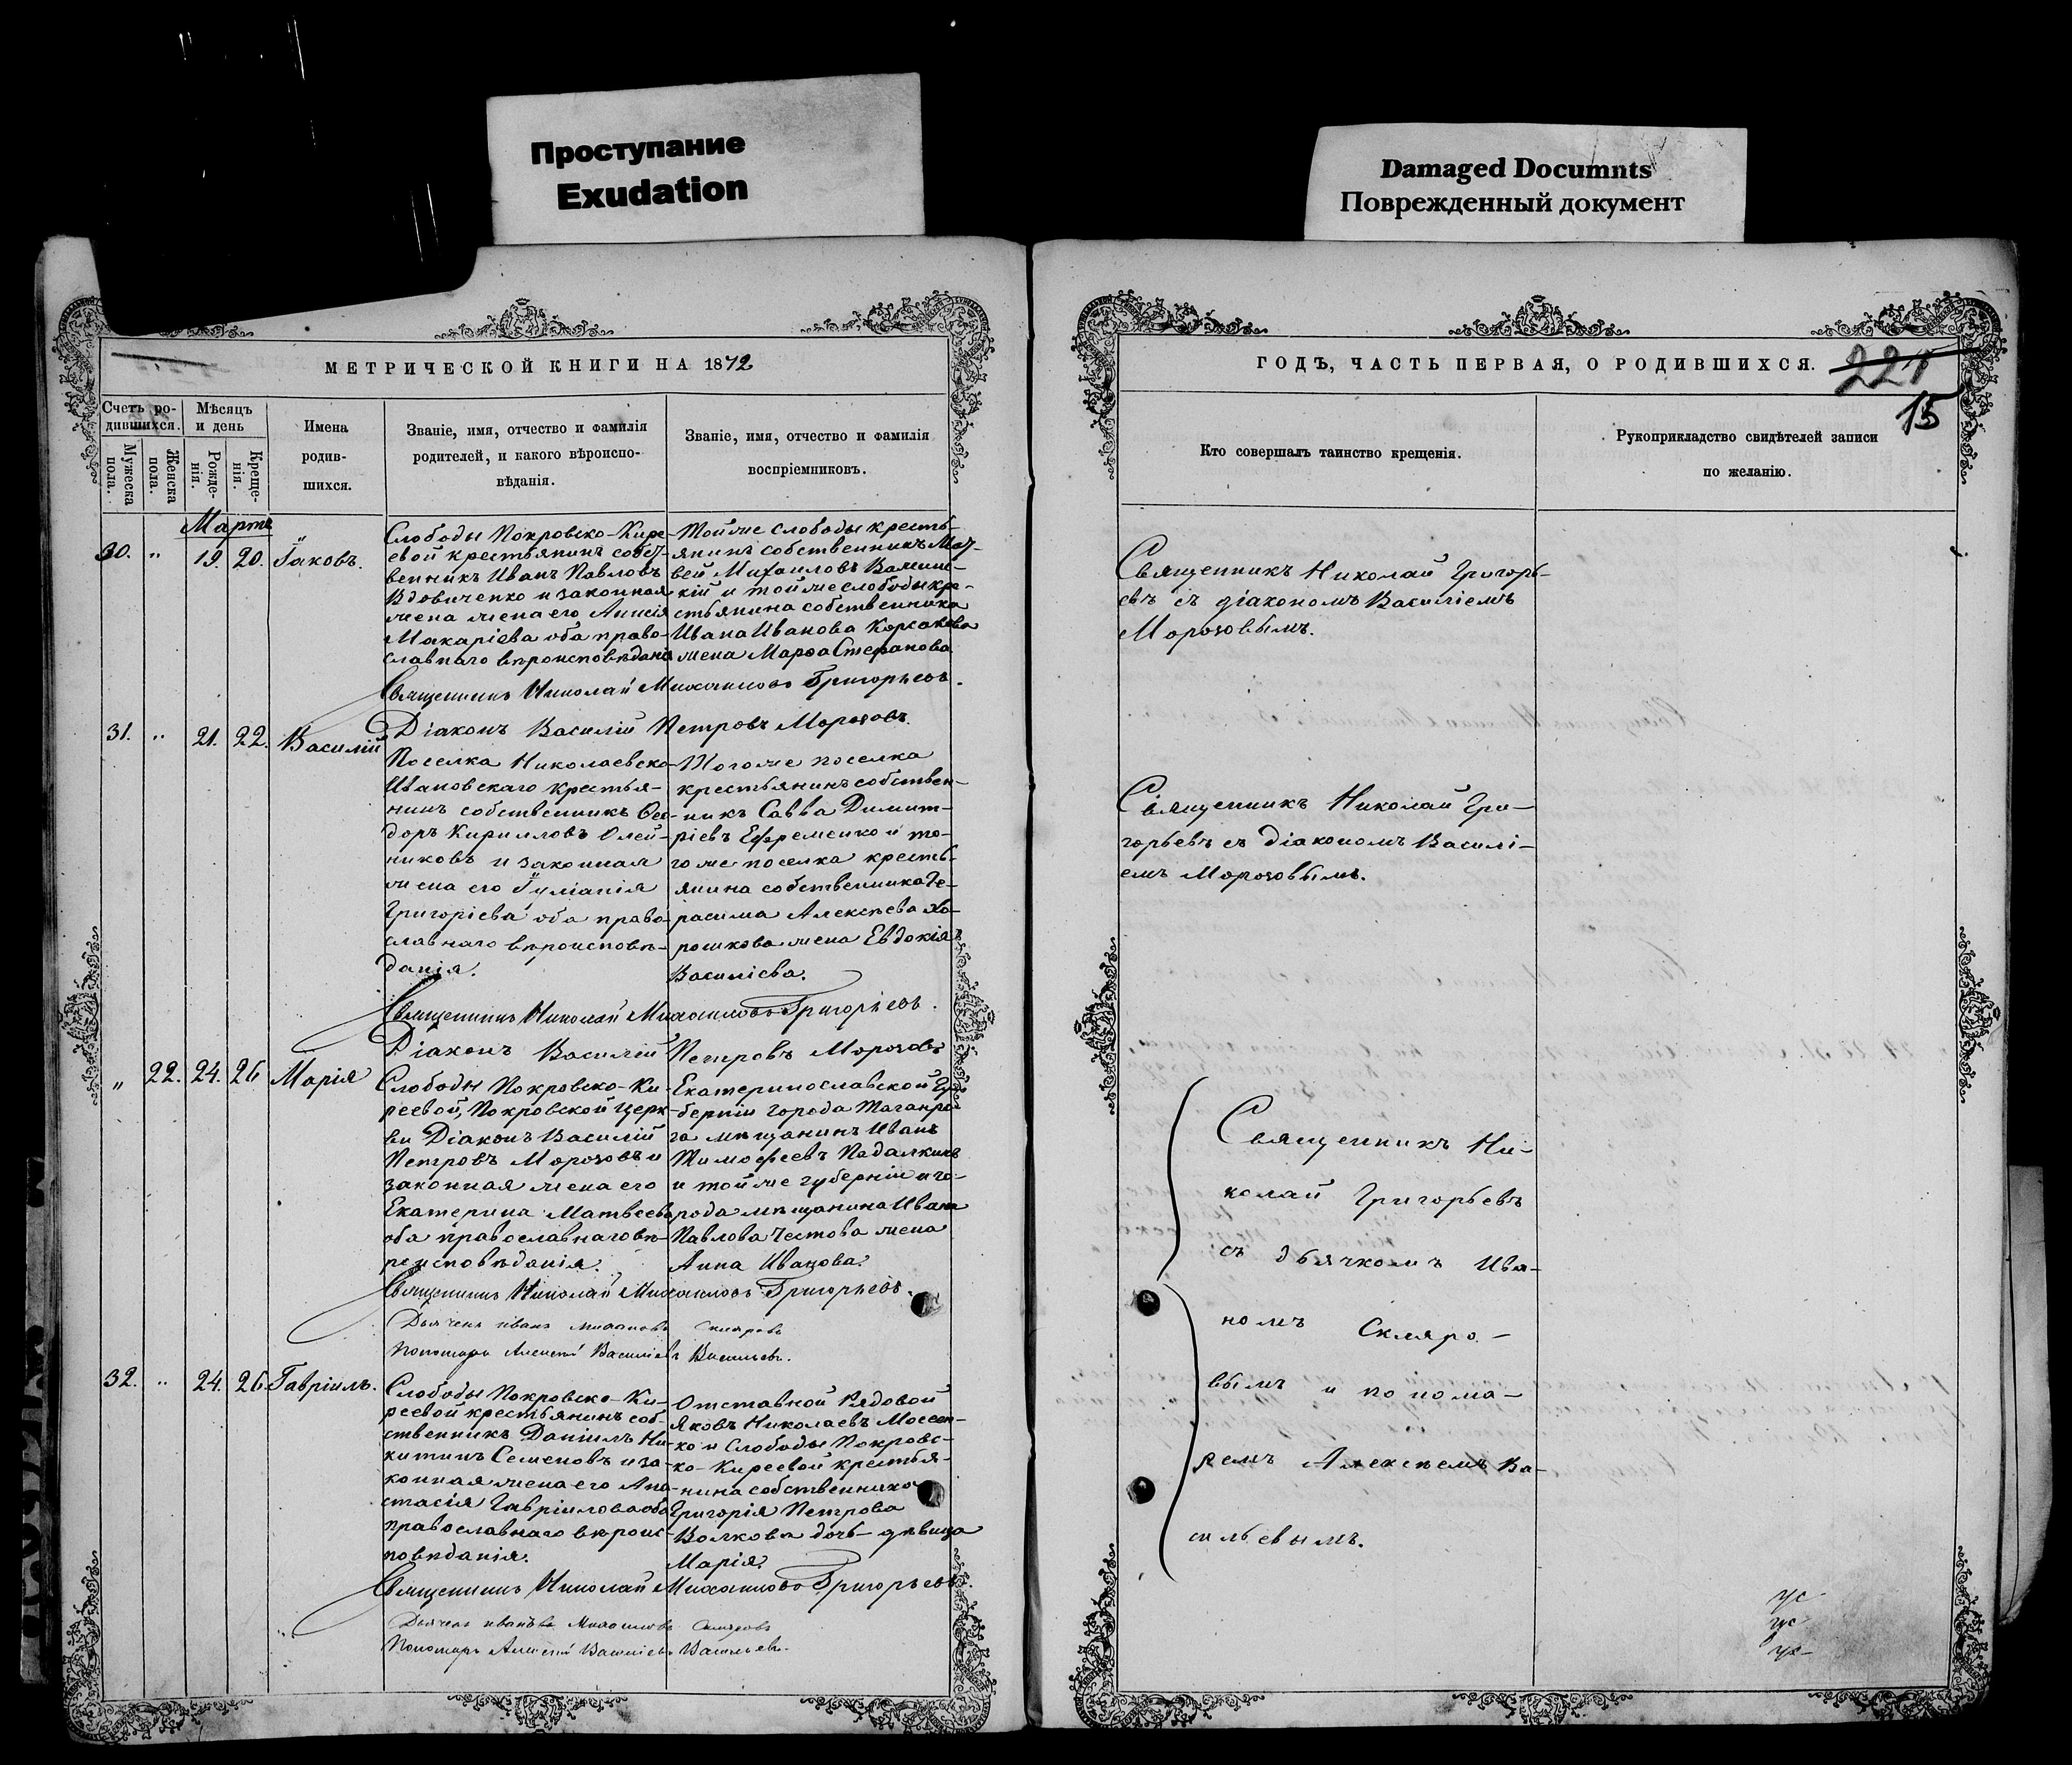 Проступание
Exudation
Damaged Documnts
Поврежденный документ
МЕТРИЧЕСКОЙ КНИГИ НА 1872
Счетъ ро-
дившихся.
Мужеска
пола.
Женска
пола.
Мѣсяцъ
и день
Рожде-
нія.
Креще-
нія.
Имена
родив-
шихся.
Званіе, имя, отчество и фамилія
родителей, и какого вѣроиспо-
вѣданія.
Званіе, имя, отчество и фамилія
воспріемниковъ.
Марта
30. " 19. 20. Іаковъ.
Слободы Покровско-Кире-
евой крестьянинъ собст-
венникъ Иванъ Павловъ
Вдовиченко и законная
жена его Анисія
Макаріева оба право-
славнаго вѣроисповѣданія
Тойже слободы кресть-
янинъ собственникъ Мат-
вей Михаиловъ
кій и тойже слободы кре-
стьянина собственника
Ивана Иванова Корсакова
жена Марѳа Стефанова
Священникъ Николай Михаиловъ Григорьевъ.
Діаконъ Василій Петровъ Морозовъ.
31. " 21. 22. Василій
Поселка Николаевско-
Ивановскаго крестья-
нинъ собственникъ Ѳео-
доръ Кирилловъ Олей-
никовъ и законная
жена его Іуліанія
Григоріева оба право-
славнаго вѣроисповѣ-
данія.
Тогоже поселка
крестьянинъ собствен-
никъ Савва Димит-
ріевъ Ефременко и то-
гоже поселка кресть-
янина собственника Ге-
расима Алексѣева Хо-
рошкова жена Евдокія
Василіева.
Священникъ Николай Михаиловъ Григорьевъ.
Діаконъ Василій Петровъ Морозовъ
" 22. 24. 26 Марія
Слободы Покровско-Ки-
реевой, Покровской церк-
ви Діаконъ Василій
Петровъ Морозовъ и
законная жена его
Екатерина Матвеева
оба православнаго вѣ-
роисповѣданія.
Екатеринославской гу-
берніи города Таганро-
га мѣщанинъ Иванъ
Тимофеевъ Падалкинъ
и тойже губерніи и го-
рода мѣщанина Ивана
Павлова Честова жена
Анна Иванова.
Священникъ Николай Михаиловъ Григорьевъ.
Дьячекъ Иванъ Михаиловъ Скляровъ
Пономарь Алексѣй Василіевъ Васильевъ.
32. " 24. 26. Гавріилъ.
Слободы Покровско-Ки-
реевой крестьянинъ соб-
ственникъ Даніилъ Ни-
китинъ Семеновъ и за-
конная жена его Ана-
стасія Гавріилова оба
православнаго вѣроис-
повѣданія.
Отставной Рядовой
Яковъ Николаевъ Мосеен-
ко и Слободы Покровс-
ко-Киреевой крестья-
нина собственника
Григорія Петрова
Волкова дочь-дѣвица
Марія.
Священникъ Николай Михаиловъ Григорьевъ.
Дьячекъ Иванъ Михаиловъ Скляровъ
Пономарь Алексѣй Василіевъ Васильевъ.
ГОДЪ, ЧАСТЬ ПЕРВАЯ, О РОДИВШИХСЯ.
15
Кто совершалъ таинство крещенія.
Рукоприкладство свидѣтелей записи
по желанію.
Священникъ Николай Григорь-
евъ съ діакономъ Василіемъ
Морозовымъ.
Священникъ Николай Гри-
горьевъ съ діакономъ Василі-
емъ Морозовымъ.
Священникъ Ни-
колай Григорьевъ
съ дьячкомъ Ива-
номъ Скляро-
вымъ и понома-
ремъ Алексѣемъ Ва-
сильевымъ.